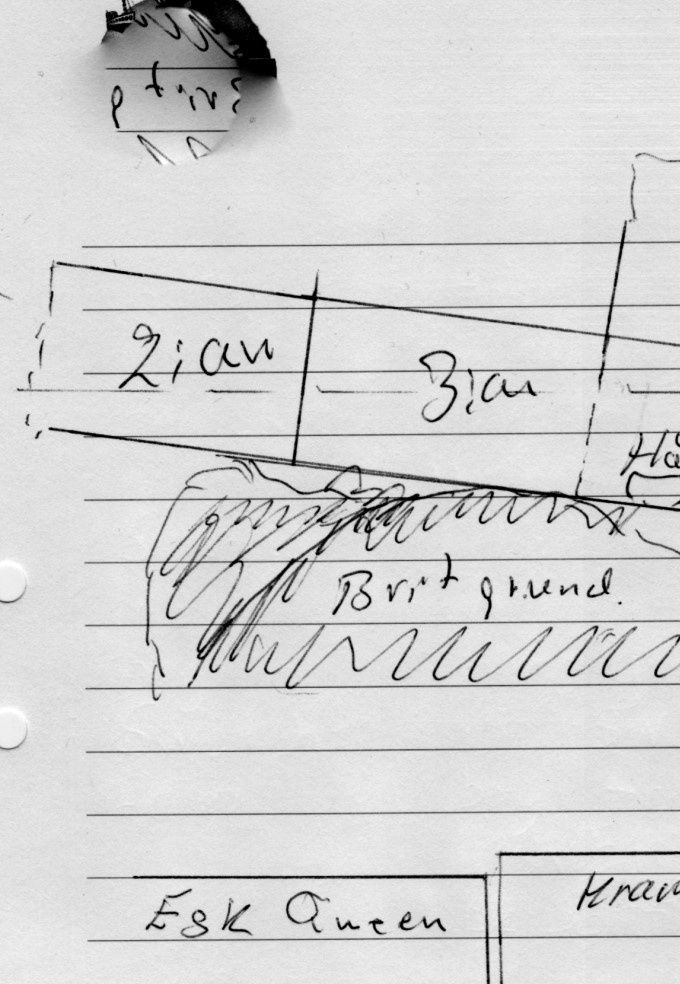 2;an
3;an
Hä
Brit ground.
Esk Queen
Kran